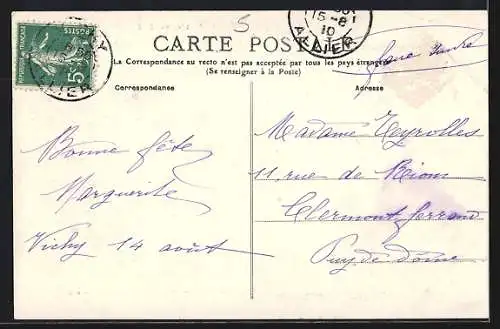 5
RÉPUBLIQUE FRANÇAISE
POSTES
5
ALLIER
15-8
10
ALLIER
CARTE POSTALE
La Correspondance au recto n'est pas acceptée par tous les pays étrangers
(Se renseigner à la Poste)
Correspondance
Adresse
Bonne fête
Marguerite
Vichy 14 août
Madame Teyrolles
11, rue de Riom
Clermont Ferrand
Puy de dôme